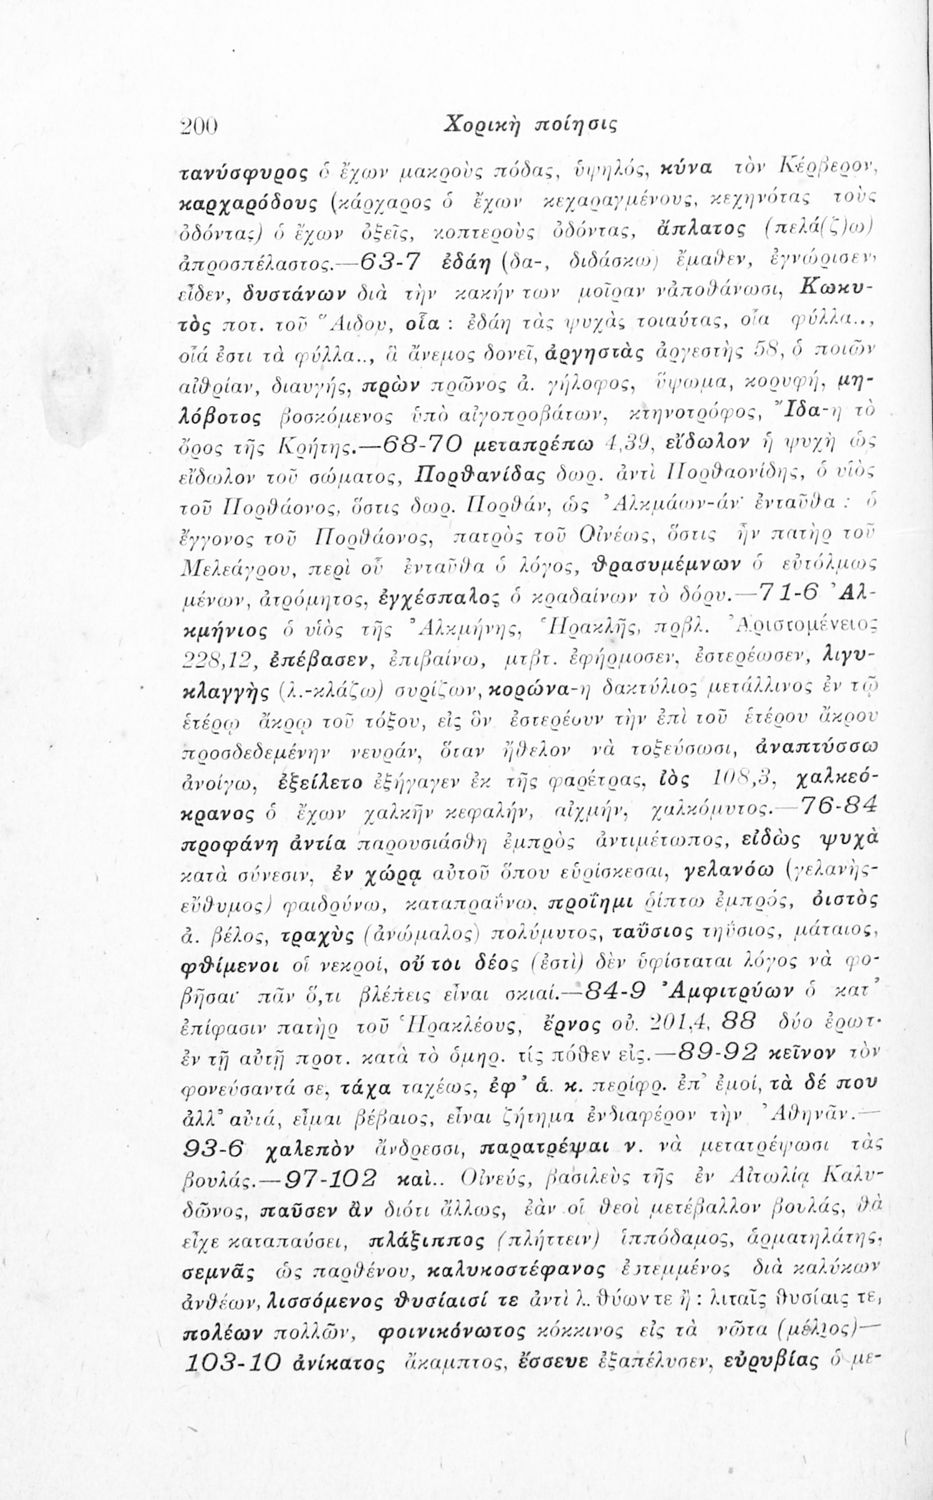 200 Χορικὴ ποίησις
τανύσφυρος ὁ ἔχων μακροὺς πόδας, ὑψηλός, κύνα τὸν Κέρβερον,
καρχαρόδους (κάρχαρος ὁ ἔχων κεχαραγμένους, κεχηνότας τοὺς
ὀδόντας) ὁ ἔχων ὀξεῖς, κοπτεροὺς ὀδόντας, ἄπλατος (πελά(ζ)ω)
ἀπροσπέλαστος.—63-7 ἐδάη (δα-, διδάσκω) ἔμαθεν, ἐγνώρισεν,
εἶδεν, δυστάνων διὰ τὴν κακήν των μοῖραν νἀποθάνωσι, Κωκυ-
τὸς ποτ. τοῦ Ἅιδου, οἷα : ἐδάη τὰς ψυχὰς τοιαύτας, οἷα φύλλα..,
οἷά ἐστι τὰ φύλλα.., ἃ ἄνεμος δονεῖ, ἀργηστὰς ἀργεστὴς 58, ὁ ποιῶν
αἰθρίαν, διαυγής, πρὼν πρῶνος ἀ. γήλοφος, ὕψωμα, κορυφή, μη-
λόβοτος βοσκόμενος ὑπὸ αἰγοπροβάτων, κτηνοτρόφος, Ἴδα-η τὸ
ὄρος τῆς Κρήτης.—68-70 μεταπρέπω 4,39, εἴδωλον ἡ ψυχὴ ὡς
εἴδωλον τοῦ σώματος, Πορθανίδας δωρ. ἀντὶ Πορθαονίδης, ὁ υἱὸς
τοῦ Πορθάονος, ὅστις δωρ. Πορθάν, ὡς Ἀλκμάων-άν· ἐνταῦθα : ὁ
ἔγγονος τοῦ Πορθάονος, πατρὸς τοῦ Οἰνέως, ὅστις ἦν πατὴρ τοῦ
Μελεάγρου, περὶ οὗ ἐνταῦθα ὁ λόγος, θρασυμέμνων ὁ εὐτόλμως
μένων, ἀτρόμητος, ἐγχέσπαλος ὁ κραδαίνων τὸ δόρυ.—71-6 Ἀλ-
κμήνιος ὁ υἱὸς τῆς Ἀλκμήνης, Ἡρακλῆς, πρβλ. Ἀριστομένειος
228,12, ἐπέβασεν, ἐπιβαίνω, μτβτ. ἐφήρμοσεν, ἐστερέωσεν, λιγυ-
κλαγγὴς (λ.-κλάζω) συρίζων, κορώνα-η δακτύλιος μετάλλινος ἐν τῷ
ἑτέρῳ ἄκρῳ τοῦ τόξου, εἰς ὃν ἐστερέουν τὴν ἐπὶ τοῦ ἑτέρου ἄκρου
προσδεδεμένην νευράν, ὅταν ἤθελον νὰ τοξεύσωσι, ἀναπτύσσω
ἀνοίγω, ἐξείλετο ἐξήγαγεν ἐκ τῆς φαρέτρας, ἰὸς 108,3, χαλκεό-
κρανος ὁ ἔχων χαλκῆν κεφαλήν, αἰχμήν, χαλκόμυτος.—76-84
προφάνη ἀντία παρουσιάσθη ἐμπρὸς ἀντιμέτωπος, εἰδὼς ψυχᾷ
κατὰ σύνεσιν, ἐν χώρᾳ αὐτοῦ ὅπου εὑρίσκεσαι, γελανόω (γελανὴς-
εὔθυμος) φαιδρύνω, καταπραΰνω, προΐημι ῥίπτω ἐμπρός, ὀιστὸς
ἀ. βέλος, τραχὺς (ἀνώμαλος) πολύμυτος, ταΰσιος τηΰσιος, μάταιος,
φθίμενοι οἱ νεκροί, οὔ τοι δέος (ἐστὶ) δὲν ὑφίσταται λόγος νὰ φο-
βῆσαι· πᾶν ὅ,τι βλέπεις εἶναι σκιαί.—84-9 Ἀμφιτρύων ὁ κατ'
ἐπίφασιν πατὴρ τοῦ Ἡρακλέους, ἔρνος οὐ. 201,4, 88 δύο ἐρωτ·
ἐν τῇ αὐτῇ προτ. κατὰ τὸ ὁμηρ. τίς πόθεν εἰς.—89-92 κεῖνον τὸν
φονεύσαντά σε, τάχα ταχέως, ἐφ' ἁ. κ. περίφρ. ἐπ' ἐμοί, τὰ δέ που
ἀλλ' αὐτά, εἶμαι βέβαιος, εἶναι ζήτημα ἐνδιαφέρον τὴν Ἀθηνᾶν.—
93-6 χαλεπὸν ἄνδρεσσι, παρατρέψαι ν. νὰ μετατρέψωσι τὰς
βουλάς.—97-102 καὶ.. Οἰνεύς, βασιλεὺς τῆς ἐν Αἰτωλίᾳ Καλυ-
δῶνος, παῦσεν ἂν διότι ἄλλως, ἐὰν οἱ θεοὶ μετέβαλλον βουλάς, θὰ
εἶχε καταπαύσει, πλάξιππος (πλήττειν) ἱππόδαμος, ἁρματηλάτης,
σεμνᾶς ὡς παρθένου, καλυκοστέφανος ἐστεμμένος διὰ καλύκων
ἀνθέων, λισσόμενος θυσίαισί τε ἀντὶ λ. θύων τε ἢ : λιταῖς θυσίαις τε,
πολέων πολλῶν, φοινικόνωτος κόκκινος εἰς τὰ νῶτα (μέλιος)—
103-10 ἀνίκατος ἄκαμπτος, ἔσσευε ἐξαπέλυσεν, εὐρυβίας ὁ με-